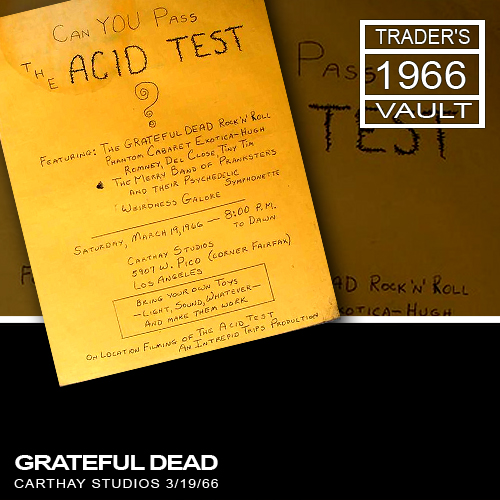 CAN YOU PASS
THE ACID TEST
?
FEATURING: THE GRATEFUL DEAD ROCK'N'ROLL
PHANTOM CABARET EXOTICA-HUGH
ROMNEY, DEL CLOSE, TINY TIM
THE MERRY BAND OF PRANKSTERS
AND THEIR PSYCHEDELIC
SYMPHONETTE
WEIRDNESS GALORE
SATURDAY, MARCH 19, 1966 — 8:00 P.M.
TO DAWN
CARTHAY STUDIOS
5907 W. PICO (CORNER FAIRFAX)
LOS ANGELES
BRING YOUR OWN TOYS
—LIGHT, SOUND, WHATEVER—
AND MAKE THEM WORK
ON LOCATION FILMING OF THE ACID TEST
AN INTREPID TRIPS PRODUCTION
TRADER'S
1966
VAULT
PASS
TEST
AD ROCK'N'ROLL
XOTICA-HUGH
GRATEFUL DEAD
CARTHAY STUDIOS 3/19/66